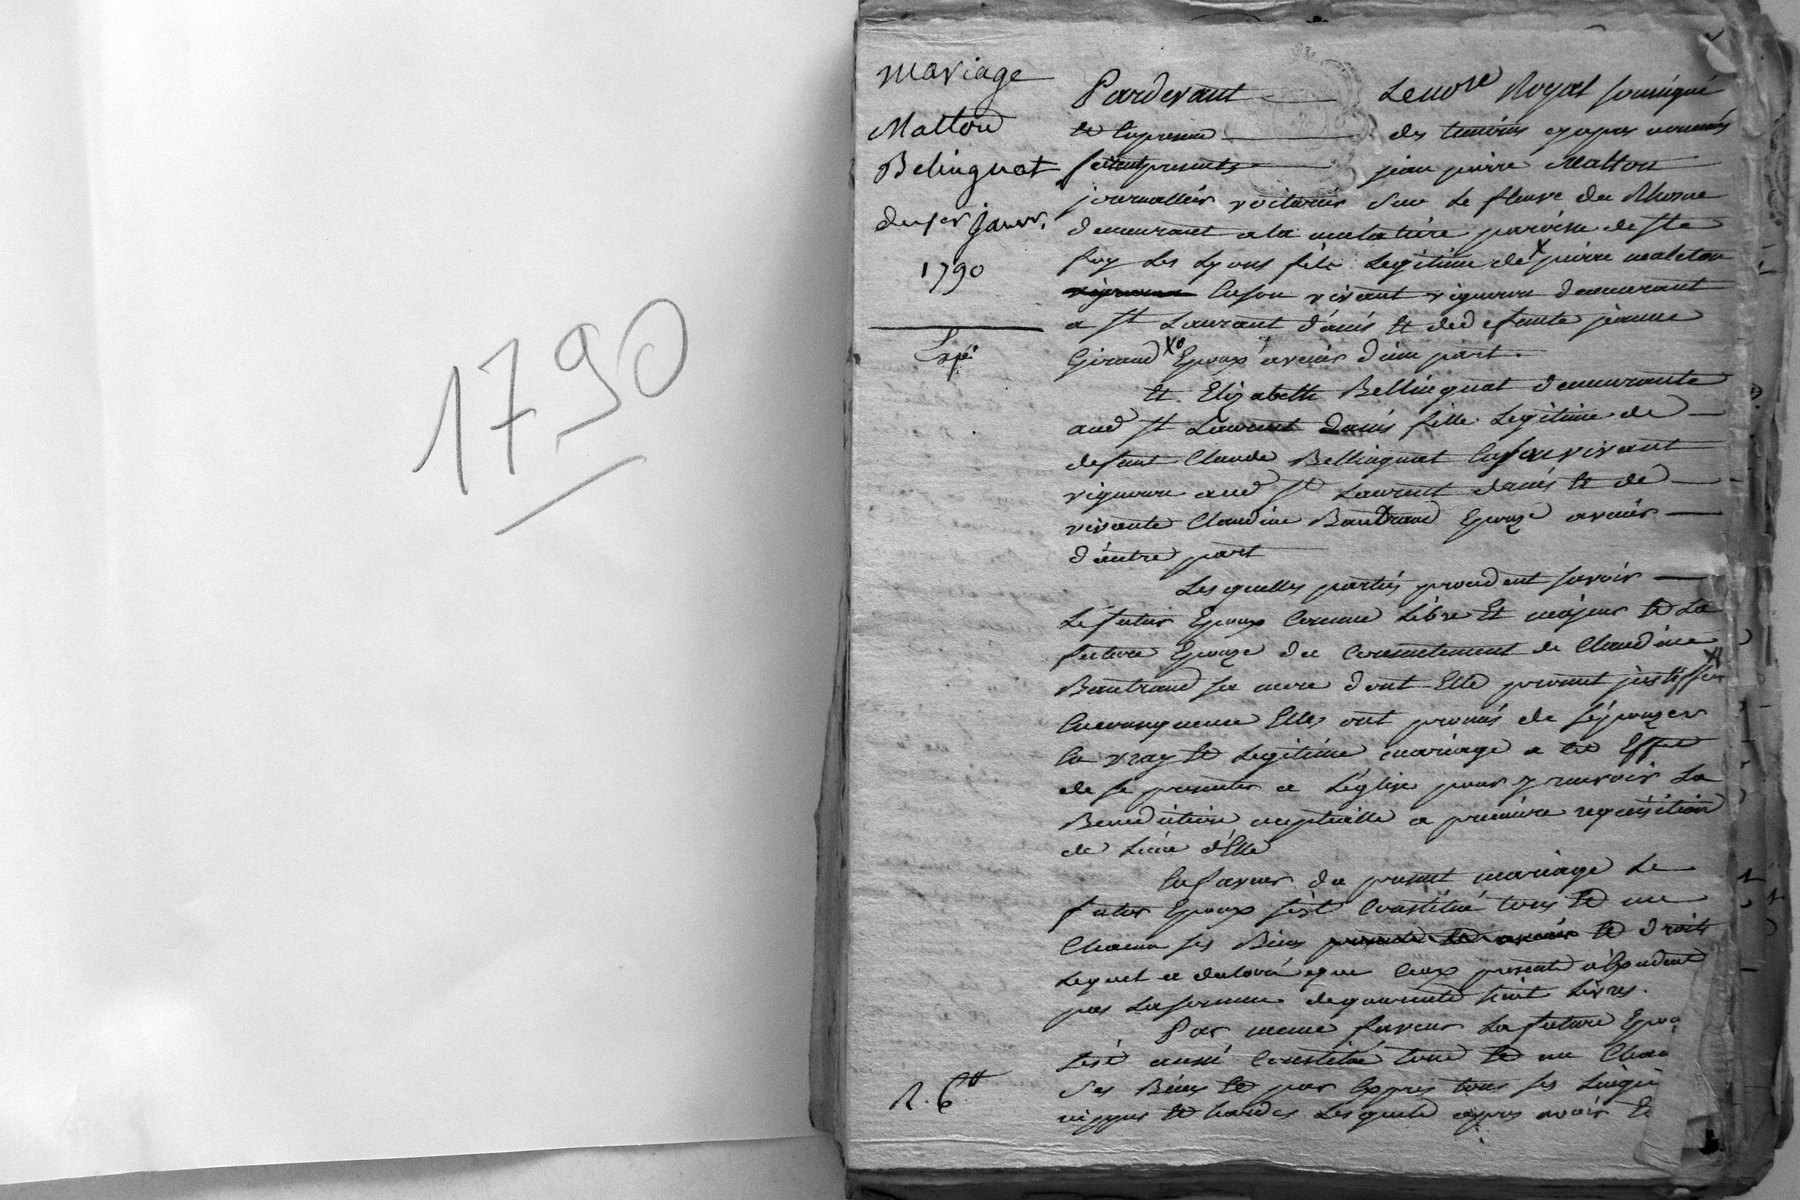 1790
mariage
Matton
Belinguat
du 1er janvr.
1790
Expé
Pardevant Le no.re Royal soussigné
et En presence des temoins cy apres nommés
furent presents jean pierre Matton
journallier voiturier sur Le fleuve du Rhone
demeurant a la mulatiere paroisse de Ste
foy Les Lyons fils Legitime de X pierre matton
Enson vivant vigneron demeurant
a St Laurant d'anis et de defunte jeanne
Giraud Xo Epoux avenir d'une part.
Et Elizabeth Bellinguat demeurante
aud St Laurent danis fille Legitime de
defunt Claude Bellinguat Ensonvivant
vigneron aud St Laurent danis et de
vivante Claudine Baudrand Epouze avenir
d'autre part
Lesquelles parties procedent savoir
Le futur Epoux Comme Libre Et majeur et La
future Epouze du Consentement de Claudine
Baudrand sa mere dont Elle promet justiffier
Elles ont promis de sépouzer
En vray et Legitime mariage a cet Effet
de se presenter a L'église pour y recevoir La
Benediction nuptialle a premiere requisition
de Lune d'Elle
Enfaveur du present mariage Le
futur Epoux s'est Constitué tous et un
Chacun ses Biens presents et avenir et droits
Lequel a declaré que Ceux presents n'Excedent
pas La somme de quarante huit Livres.
Par meme faveur La future Epou
s'est aussi Constitué tous et un Chac
Ses Biens et par Exprès tous ses Linges
nippes et hardes Lesquels apres avoir Et
R. 6tt